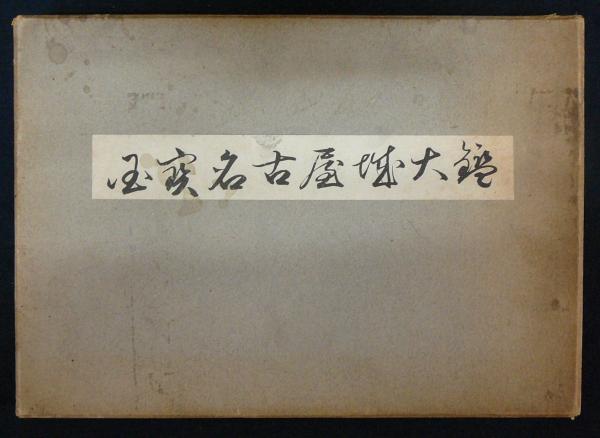 国寶名古屋城大鑑